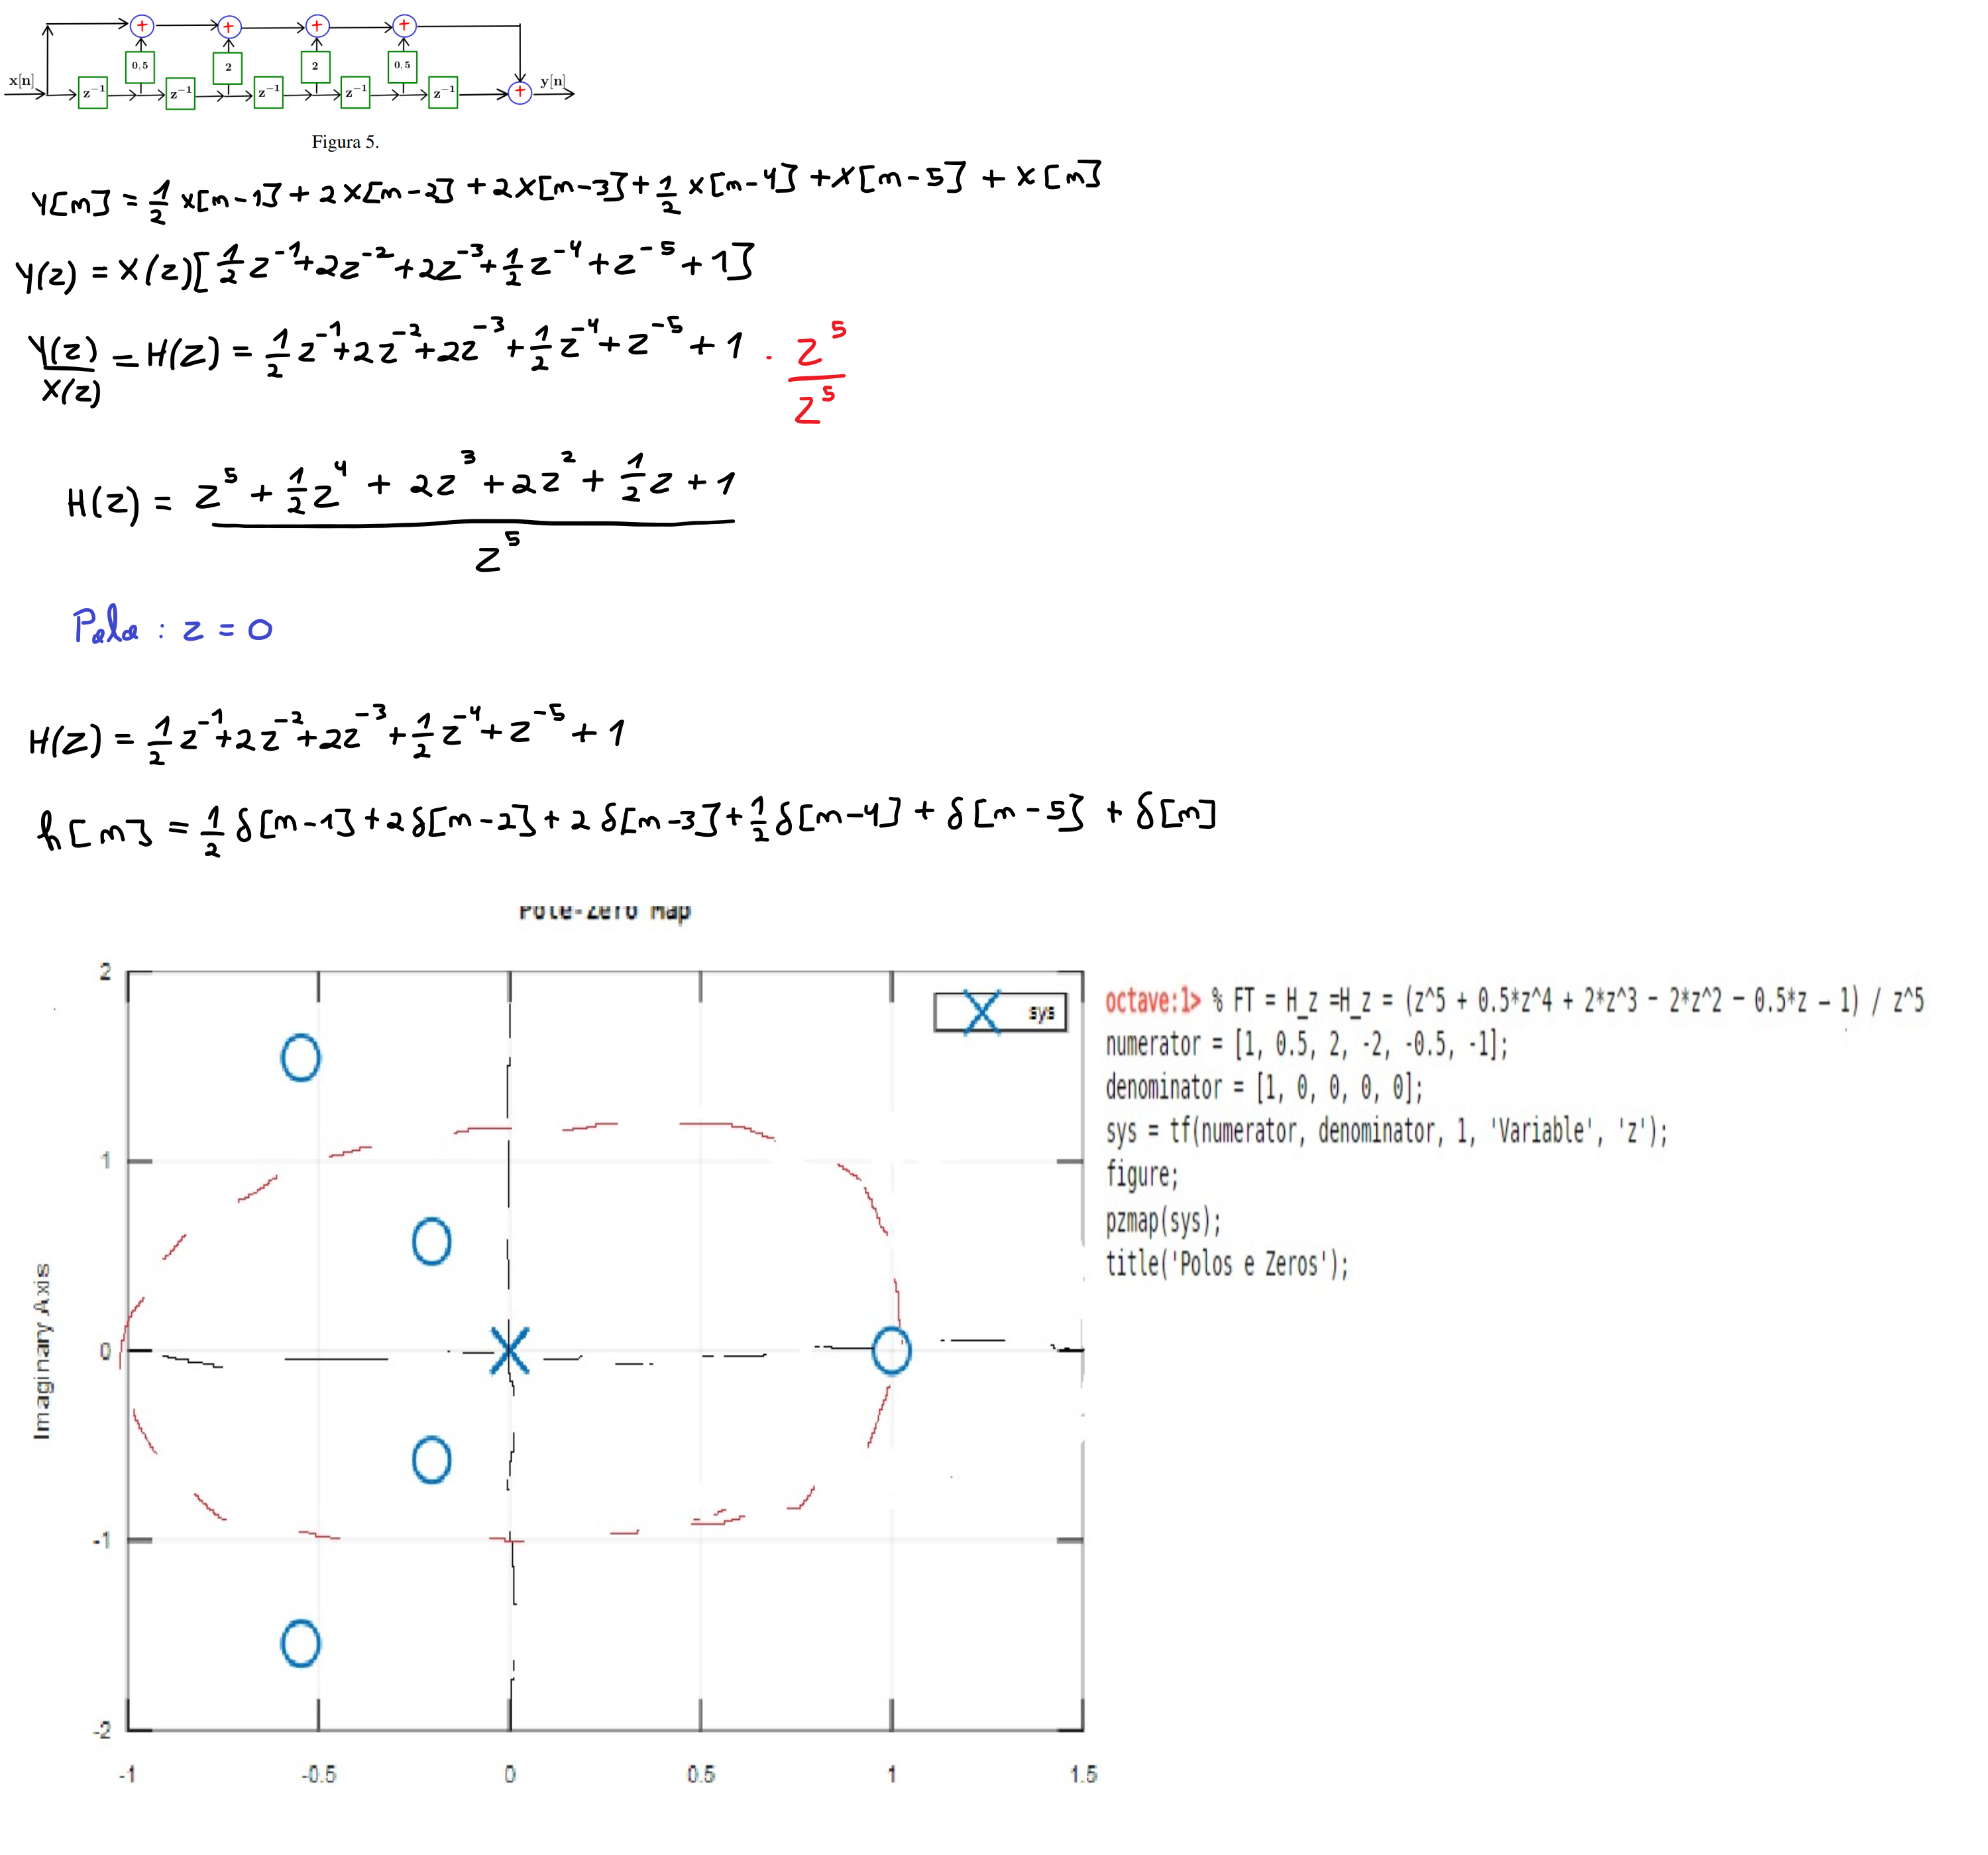 + + + +
0.5 2 2 0.5
x[n] z⁻¹ z⁻¹ z⁻¹ z⁻¹ z⁻¹ + y[n]
Figura 5.
y[n] = 1/2 x[n-1] + 2x[n-2] + 2x[n-3] + 1/2 x[n-4] + x[n-5] + x[n]
Y(z) = X(z)[1/2 z⁻¹ + 2z⁻² + 2z⁻³ + 1/2 z⁻⁴ + z⁻⁵ + 1]
Y(z)/X(z) = H(z) = 1/2 z⁻¹ + 2z⁻² + 2z⁻³ + 1/2 z⁻⁴ + z⁻⁵ + 1 · z⁵/z⁵
H(z) = z⁵ + 1/2 z⁴ + 2z³ + 2z² + 1/2 z + 1
z⁵
Polo : z = 0
H(z) = 1/2 z⁻¹ + 2z⁻² + 2z⁻³ + 1/2 z⁻⁴ + z⁻⁵ + 1
h[n] = 1/2 δ[n-1] + 2δ[n-2] + 2δ[n-3] + 1/2 δ[n-4] + δ[n-5] + δ[n]
Pole-Zero Map
2
1
0
-1
-2
Imaginary Axis
sys
-1 -0.5 0 0.5 1 1.5
octave:1> % FT = H_z =H_z = (z^5 + 0.5*z^4 + 2*z^3 - 2*z^2 - 0.5*z - 1) / z^5
numerator = [1, 0.5, 2, -2, -0.5, -1];
denominator = [1, 0, 0, 0, 0];
sys = tf(numerator, denominator, 1, 'Variable', 'z');
figure;
pzmap(sys);
title('Polos e Zeros');